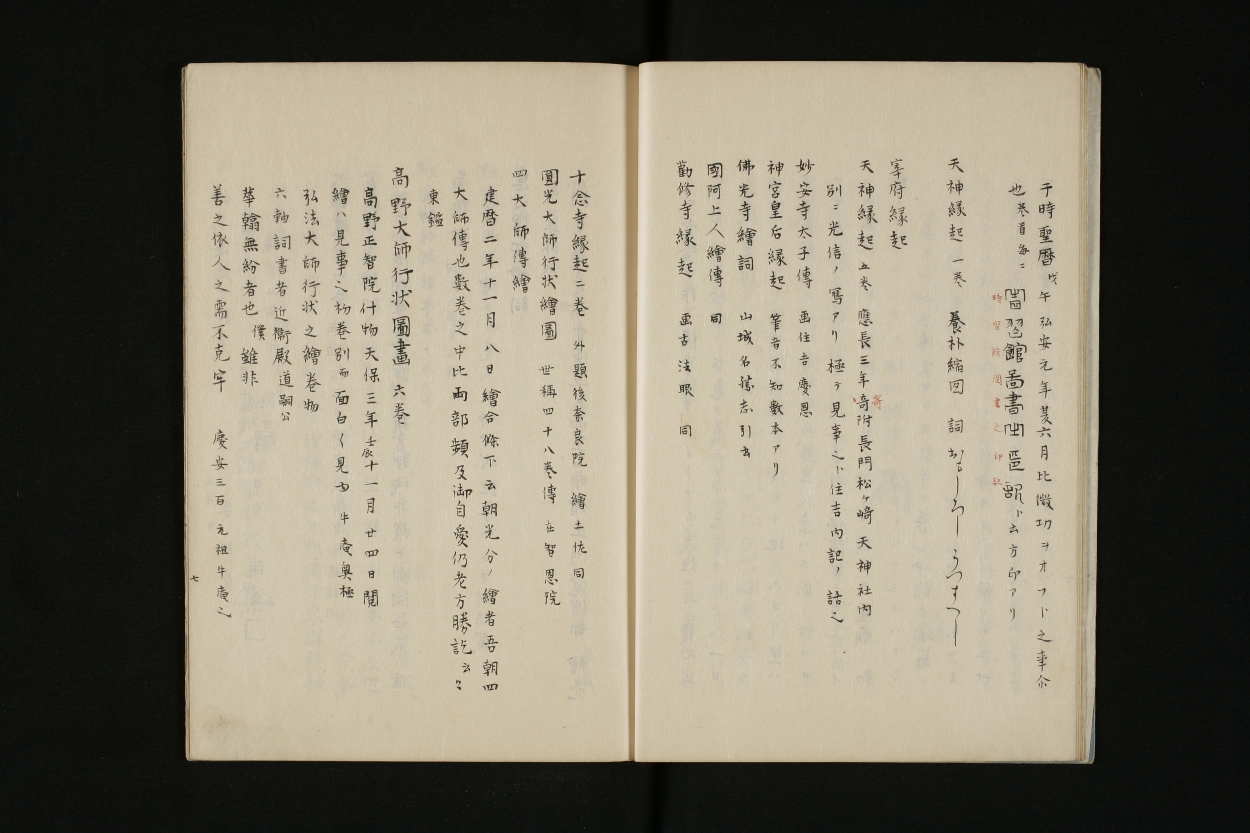 于時聖暦戊午弘安元年夏六月比微功ヲオフト之幸介
也巻首毎ニ
時習館図書之印記
ト云方印アリ
天神縁起 一巻 養朴縮図 詞
宰府縁起
天神縁起 五巻 應長三年奇附長門松ヶ崎天神社内
寄
別ニ光信ノ寫アリ極テ見事之ト住吉内記ノ話之
妙安寺太子傳 画住吉慶恩
神宮皇后縁起 筆者不知数本アリ
佛光寺繪詞 山城名勝志引書
國阿上人繪傳 同
勸修寺縁起 画古法眼 同
十念寺縁起二巻 外題後奈良院 繪土佐同
圓光大師行状繪圖 世稱四十八巻傳 在智恩院
四大師傳繪
建暦二年十一月八日繪合條下云朝光分ノ繪者吾朝四
大師傳也數巻之中比両部頻及御自愛仍老方勝訖云々
東鑑
高野大師行状圖畫 六巻
高野正智院什物天保三年壬辰十一月廿四日閲
繪ハ見事之 巻別而面白く見ゆ 牛庵奥極
弘法大師行状之繪巻物
六軸詞書者近衞殿道嗣公
華翰無紛者也僕雖非
善之依人之需不克牢 慶安三百 元祖牛庵之
七